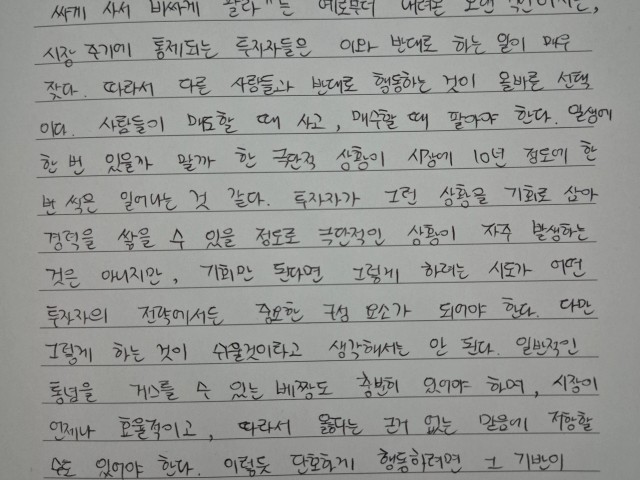 싸게 사서 비싸게 팔라"는 예로부터 내려온 오랜 격언이지만,
시장 주기에 통제되는 투자자들은 이와 반대로 하는 일이 매우
잦다. 따라서 다른 사람들과 반대로 행동하는 것이 올바른 선택
이다. 사람들이 매도할 때 사고, 매수할 때 팔아야 한다. 일생에
한 번 있을까 말까 한 극단적 상황이 시장에 10년 정도에 한
번 씩은 일어나는 것 같다. 투자자가 그런 상황을 기회로 삼아
경력을 쌓을 수 있을 정도로 극단적인 상황이 자주 발생하는
것은 아니지만, 기회만 된다면 그렇게 하려는 시도가 어떤
투자자의 전략에서든 중요한 구성 요소가 되어야 한다. 다만
그렇게 하는 것이 쉬울것이라고 생각해서는 안 된다. 일반적인
통념을 거스를 수 있는 배짱도 충분히 있어야 하며, 시장이
언제나 효율적이고, 따라서 옳다는 근거 없는 믿음에 저항할
수도 있어야 한다. 이렇듯 단호하게 행동하려면 그 기반이